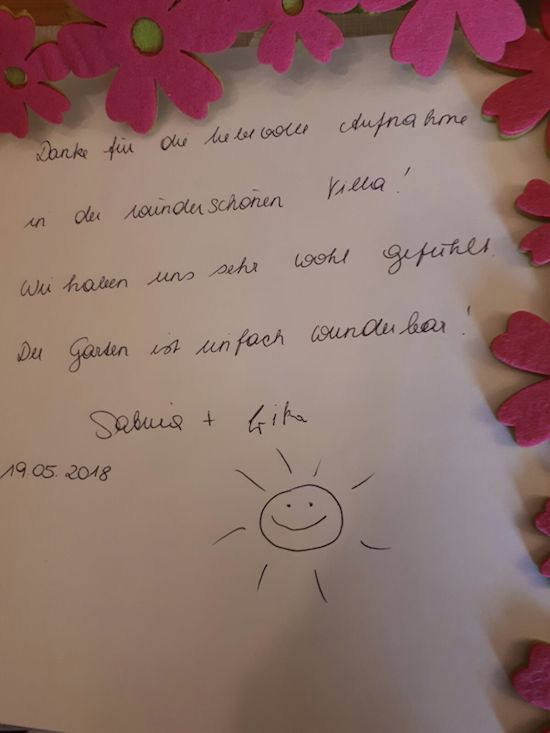 Danke für die liebevolle Aufnahme
in der wunderschönen Villa!
Wir haben uns sehr wohl gefühlt.
Der Garten ist einfach wunderbar!
Sabina + Gitta
19.05.2018